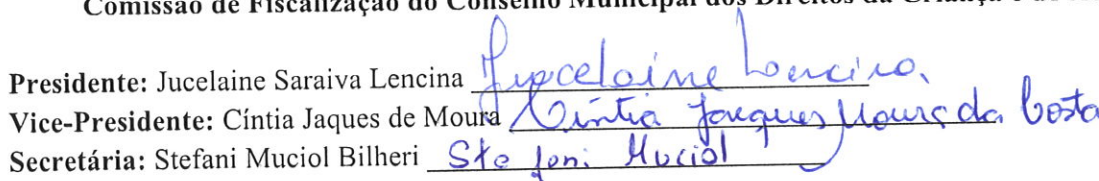 Comissão de Fiscalização do Conselho Municipal dos Direitos da Criança e do
Presidente: Jucelaine Saraiva Lencina Jucelaine Lencina.
Vice-Presidente: Cíntia Jaques de Moura Cíntia Jaques Moura da Costa
Secretária: Stefani Muciol Bilheri Stefani Muciol